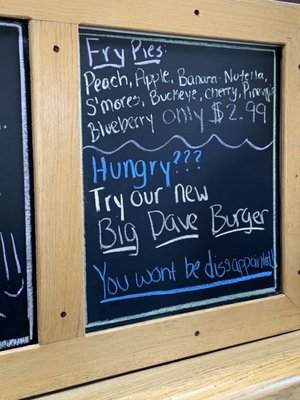 Fry Pies:
Peach, Apple, Banana-Nutella,
S'mores, Buckeye, cherry, Pineapple
Blueberry only $2.99
Hungry???
Try our new
Big Dave Burger
You wont be dissappointed!